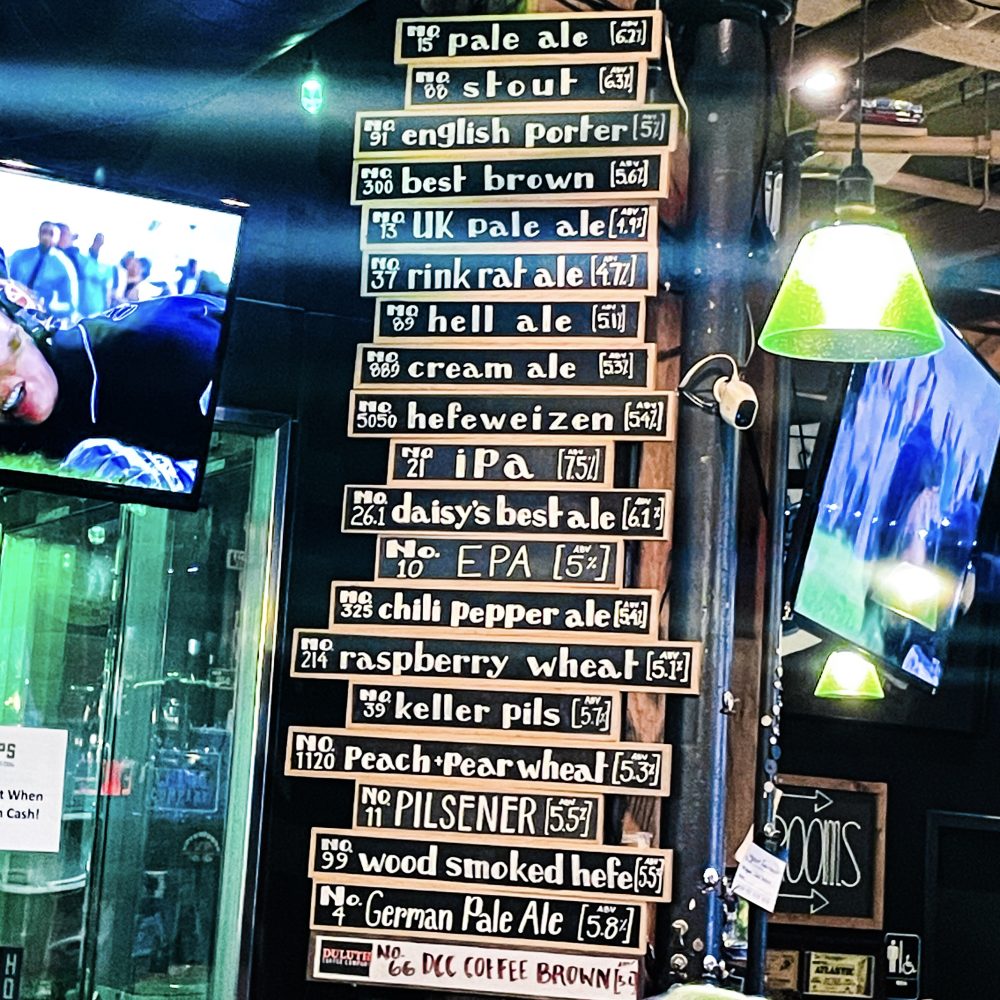 No. 15 pale ale ABV [6.2%]
No. 88 stout ABV [6.3%]
No. 91 english porter ABV [5%]
No. 300 best brown ABV [5.6%]
No. 13 UK pale ale ABV [4.9%]
No. 37 rink rat ale ABV [4.7%]
No. 89 hell ale ABV [5.1%]
No. 889 cream ale ABV [5.3%]
No. 5050 hefeweizen ABV [5.4%]
No. 21 iPa ABV [7.5%]
No. 26.1 daisy's best ale ABV [6.1%]
No. 10 EPA ABV [5%]
No. 325 chili pepper ale ABV [5.4%]
No. 214 raspberry wheat ABV [5.1%]
No. 39 keller pils ABV [5.7%]
No. 1120 Peach + Pear wheat ABV [5.3%]
No. 11 PILSENER ABV [5.5%]
No. 99 wood smoked hefe ABV [5.5%]
No. 4 German Pale Ale ABV [5.8%]
DULUTH COFFEE COMPANY No. 66 DCC COFFEE BROWN
PS
t When
Cash!
ROOMS
ATLANTIC